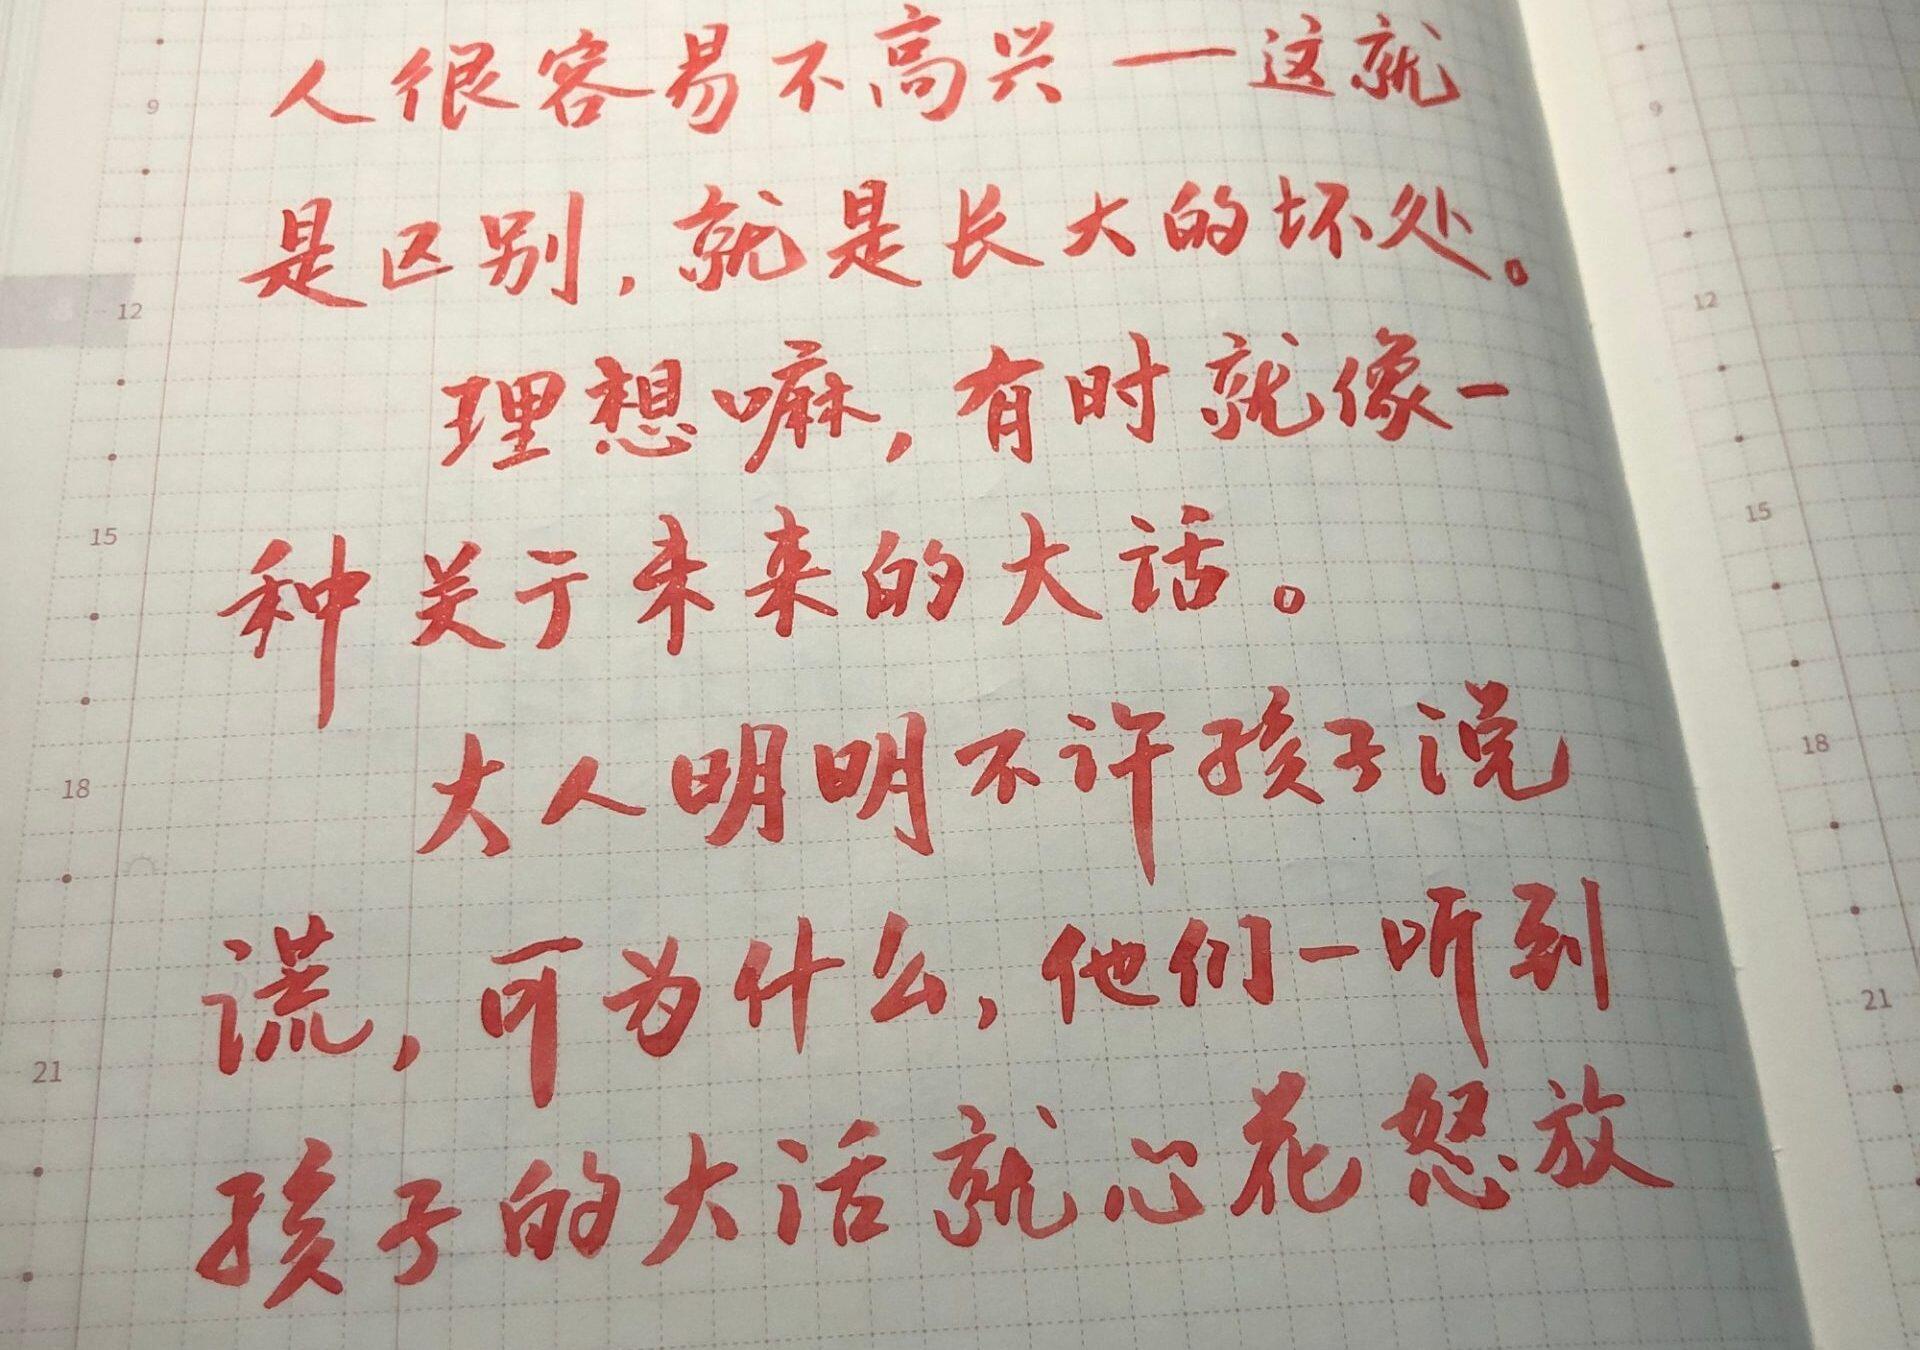 人很容易不高兴一这就
是区别，就是长大的坏处。
理想嘛，有时就像一
种关于未来的大话。
大人明明不许孩子说
谎，可为什么，他们一听到
孩子的大话就心花怒放
9
12
15
18
21
9
12
15
18
21